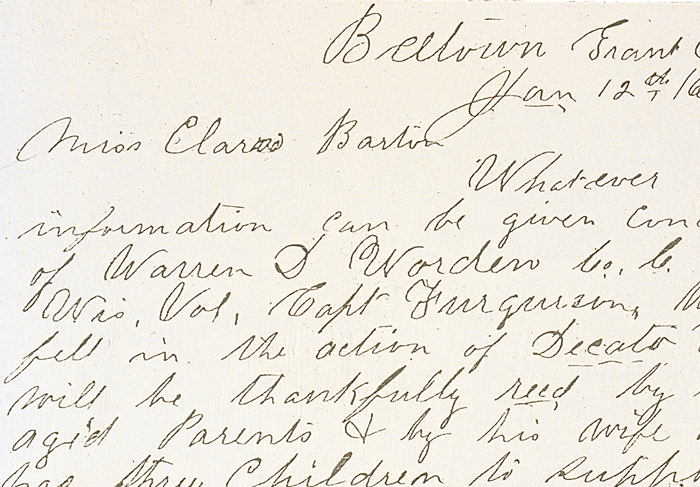 Beetown Grant
Jan 12th 18
Miss Clara Barton
Whatever
information can be given conc
of Warren D Worden Co. C.
Wis, Vol, Capt Furguison,
fell in the action of Decato
will be thankfully recd by
agid Parents & by his wife
has three Children to suppo